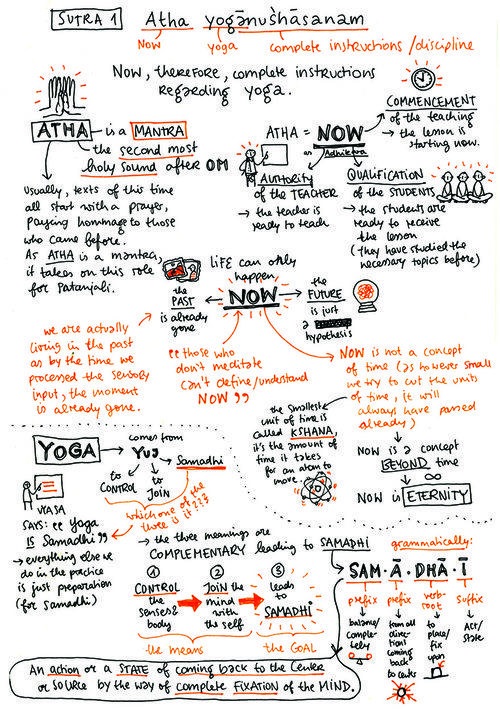 SUTRA 1
Atha yogānuśhāsanam
Now
yoga
complete instructions / discipline
Now, therefore, complete instructions
regarding yoga.
ATHA
is a MANTRA
the second most
holy sound after OM
Usually, texts of this time
all start with a prayer,
paying hommage to those
who came before.
As ATHA is a mantra,
it takes on this role
for Patanjali.
ATHA = NOW
COMMENCEMENT
of the teaching
→ the lesson is
starting now.
AUTHORITY
of the TEACHER
→ the teacher is
ready to teach
QUALIFICATION
of the STUDENTS
→ the students are
ready to receive
the lesson
(They have studied the
necessary topics before)
LIFE can only
happen
NOW
the
PAST
is already
gone
the
FUTURE
is just
a
hypothesis
we are actually
living in the past
as by the time we
processed the sensory
input, the moment
is already gone.
“those who
don't meditate
can't define/understand
NOW”
NOW is not a concept
of time (as however small
we try to cut the units
of time, it will
always have passed
already)
NOW is a concept
BEYOND time
∞
NOW is ETERNITY
the smallest
unit of time is
called KSHANA,
it's the amount of
time it takes
for an atom to
move
YOGA
comes from
Yuj
to
CONTROL
to
JOIN
Samadhi
which one of the
three is it???
VYASA
SAYS: “Yoga
is Samadhi”
→ everything else we
do in the practice
is just preparation
(for Samadhi)
→ the three meanings are
COMPLEMENTARY leading to SAMADHI
1
CONTROL
the
senses &
body
2
JOIN the
mind
with
the self
3
leads
to
SAMADHI
the means
the GOAL
grammatically:
SAM · Ā · DHĀ · Ī
prefix
prefix
verb-
root
suffix
balance/
comple-
tely
from all
direc-
tions
coming
back
to center
to
place/
fix
upon
Act/
State
An action or a STATE of coming back to the Center
or SOURCE by the way of complete FIXATION of the MIND.